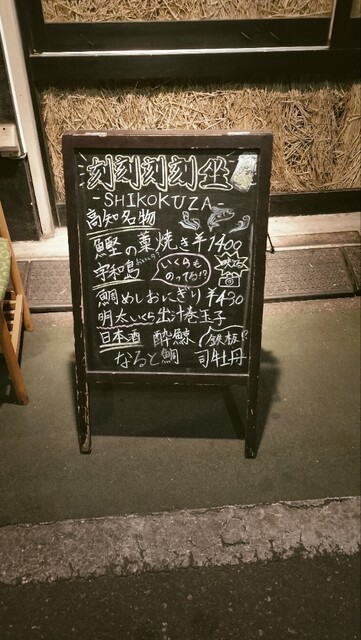 刻刻刻刻坐
-SHIKOKUZA-
高知名物
鰹の藁焼き¥1400
宇和島
いくらも
のってる!?
鯛めしおにぎり¥430
明太いくら出汁巻玉子
日本酒 酔鯨 鉄板!?
なると鯛 司牡丹